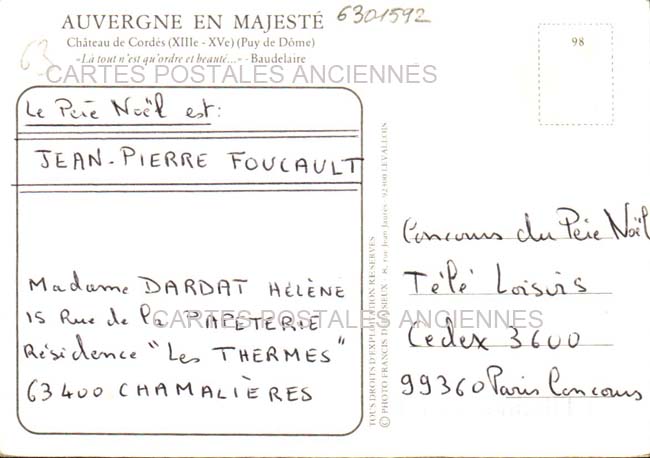 AUVERGNE EN MAJESTÉ
6301592
Château de Cordés (XIIIe - XVe) (Puy de Dôme)
63
«Là tout n'est qu'ordre et beauté...» - Baudelaire
98
CARTES POSTALES ANCIENNES
Le Père Noël est:
JEAN-PIERRE FOUCAULT
Madame DARDAT HÉLÈNE
15 Rue de la PAPETERIE
Résidence "Les THERMES"
63400 CHAMALIÈRES
CARTES POSTALES ANCIENNES
TOUS DROITS D'EXPLOITATION RESERVES
© PHOTO FRANCIS DEBAISIEUX - 8, rue Jean Jaurès - 92300 LEVALLOIS
Concours du Père Noël
Télé Loisirs
Cedex 3600
99360 Paris Concours